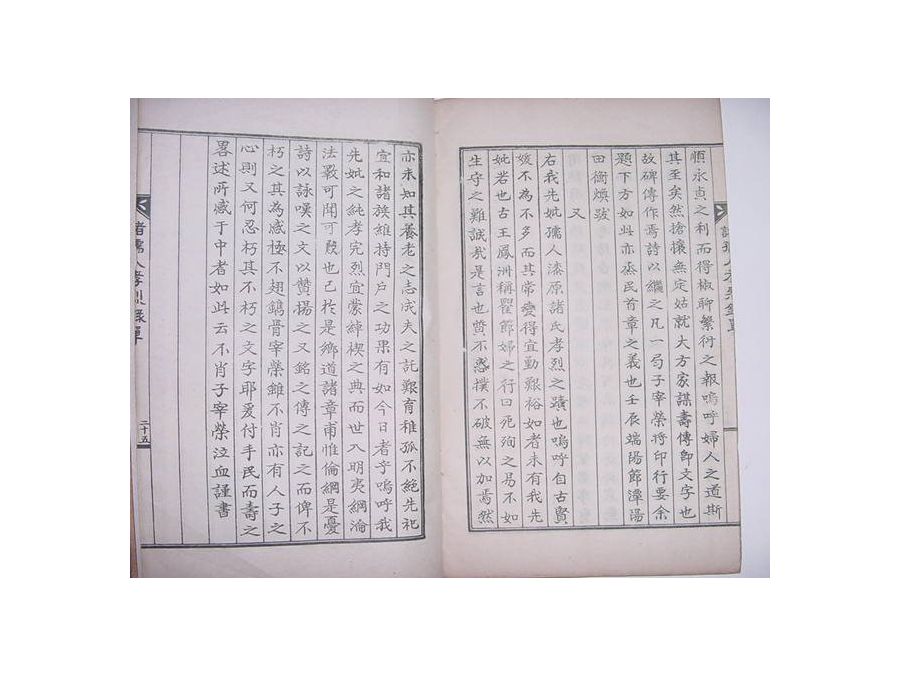 恒永貞之利而得椒聊繁衍之報嗚呼婦人之道斯
其至矣然搶攘無定姑就大方家謀壽傳卽文字也
故碑傳作焉詩以繼之凡一句子宰榮將印行要余
題下方如此亦烝民首章之義也壬辰端陽節潭陽
田衡煥跋
又
右我先妣孺人漆原諸氏孝烈之蹟也嗚呼自古賢
媛不為不多而其常變得宜勤艱裕如者未有我先
妣若也古王鳳洲稱瞿節婦之行曰死殉之易不如
生守之難誠哉是言也贊不惑撲不破無以加焉然
亦未知其養老之志成夫之託艱育稚孤不絕先祀
宜和諸族維持門戶之功果有如今日者乎嗚呼我
先妣之純孝完烈宜蒙綽楔之典而世入明夷綱淪
法斁可聞可觀也已於是鄉道諸章甫惟倫綱是憂
詩以詠嘆之文以贊揚之又銘之傳之記之而俾不
朽之其為感極不翅鐫骨宰榮雖不肖亦有人子之
心則又何忍朽其不朽之文字耶爰付手民而壽之
畧述所感于中者如此云不肖子宰榮泣血謹書
諸孺人孝烈錄單
二十五